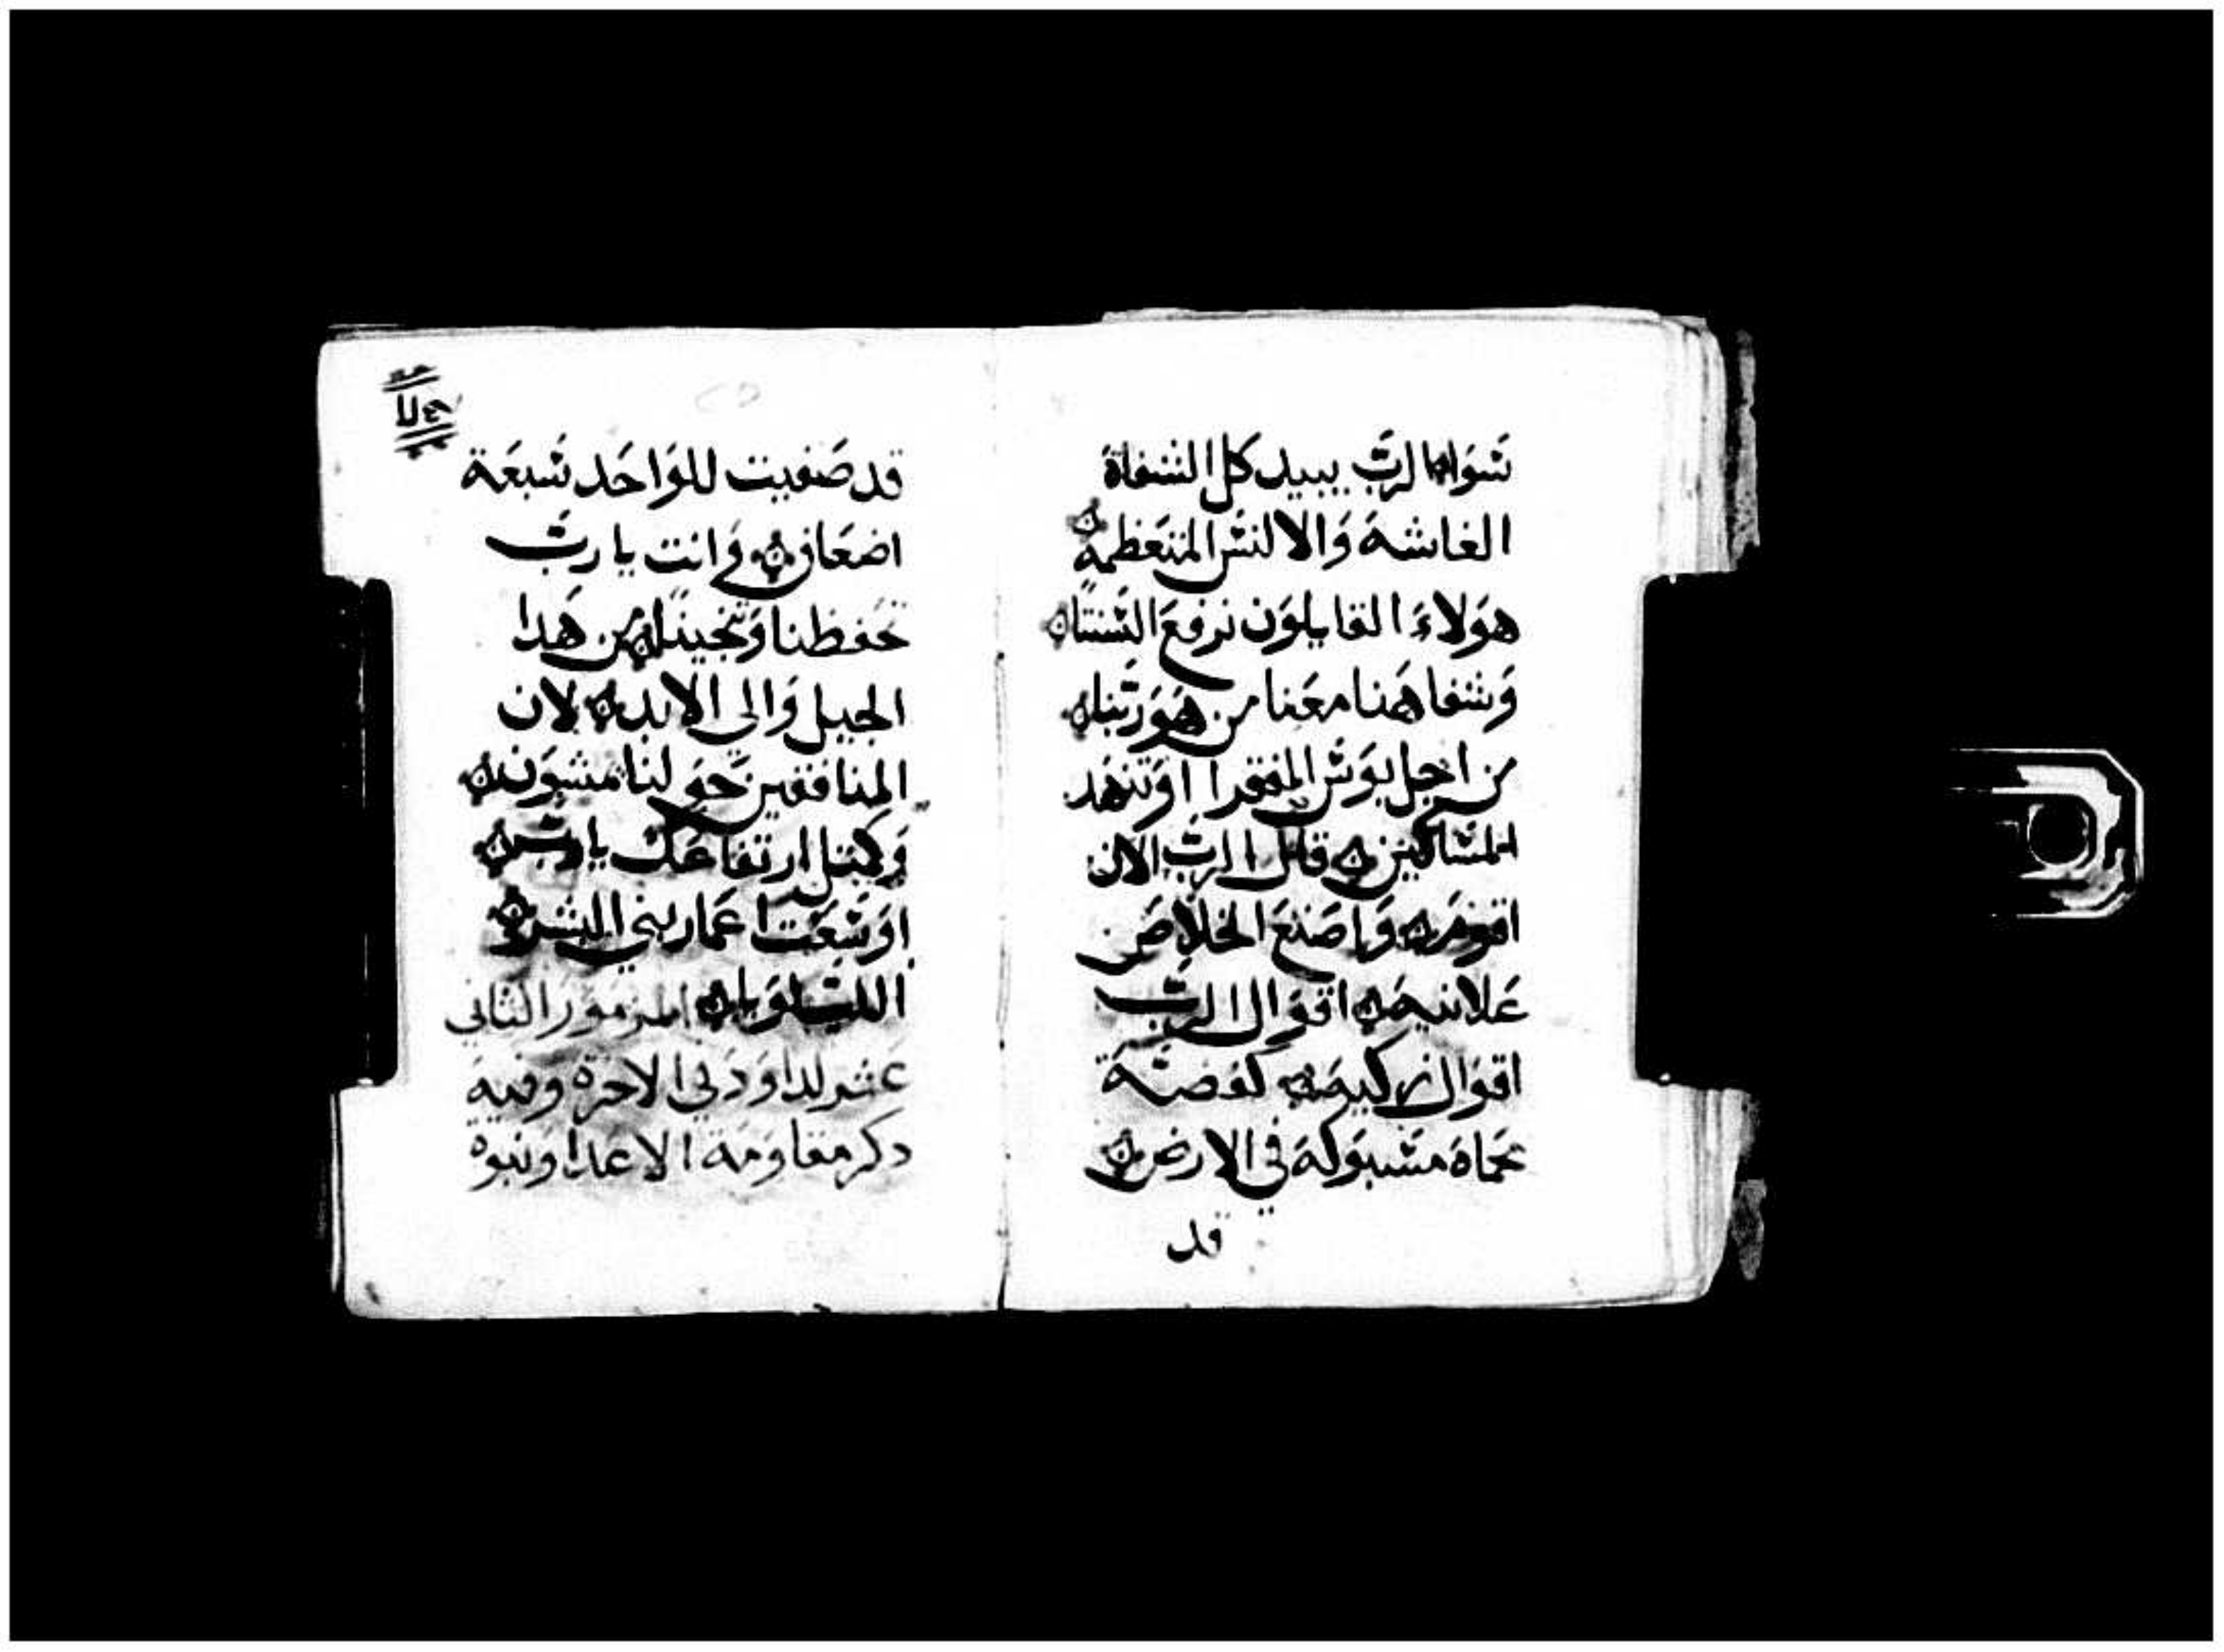 سوا الرب يبيد كل الشفاة
الغاشة والالنس المتعظمة
هولاء القايلون نرفع السنتنا
وشفاهنا معنا من هو ربنا
من اجل بوس الفقرا اوتنهد
المساكين قال الرب الان
اقوم واصنع الخلاص
علانية اقوال الرب
اقوال زكية كفضة
محماه مسبوكة في الارض
قد
قد صفيت للواحد سبعة
اضعاف وانت يا رب
تحفظنا وتنجينا من هدا
الجيل والى الابد لان
المنافقين حولنا يمشون
وكمتل ارتفاعك يا رب
اوسعت اعمار بني البشر
الليلويا المزمور الثاني
عشر لداود في الاخرة وفيه
دكر مقاومة الاعدا ونبوة